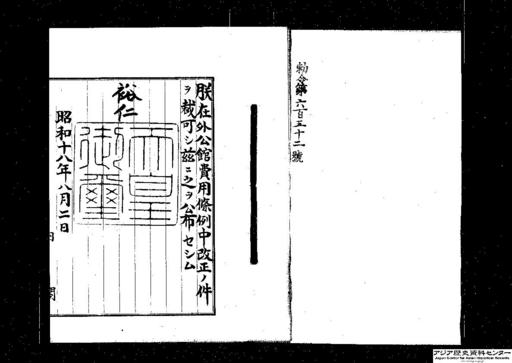 勅令第六百三十二號
朕在外公館費用條例中改正ノ件
ヲ裁可シ茲ニ之ヲ公布セシム
裕仁
天皇御璽
昭和十八年八月二日
内
閣
アジア歴史資料センター
Japan Center for Asian Historical Records